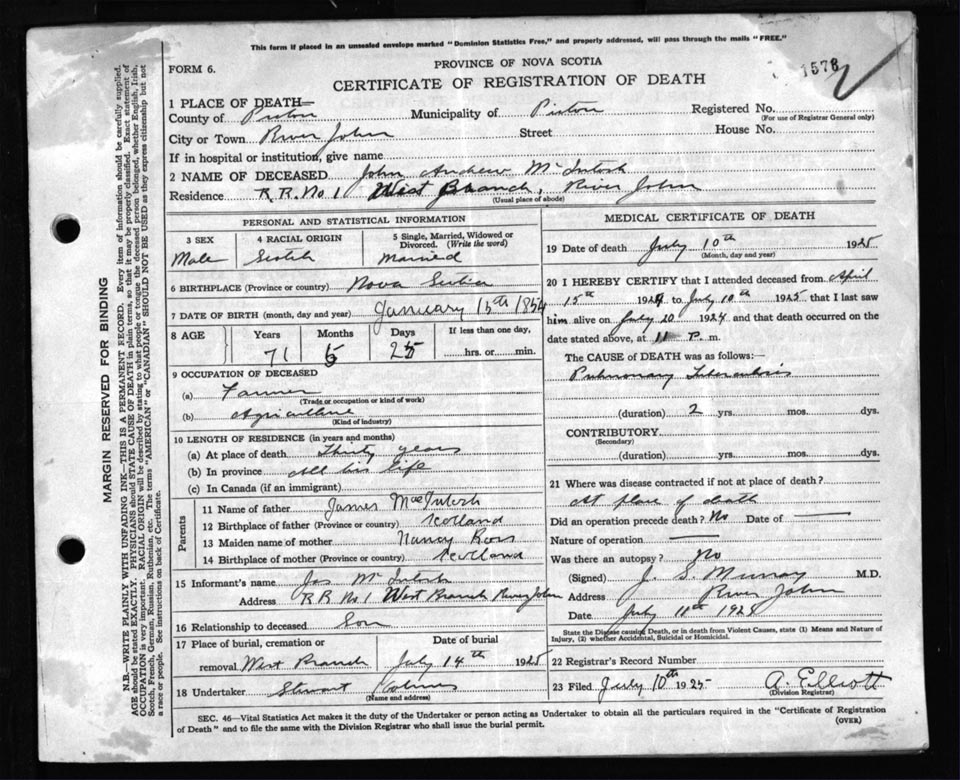 This form if placed in an unsealed envelope marked "Dominion Statistics Free," and properly addressed, will pass through the mails "FREE."
FORM 6.
PROVINCE OF NOVA SCOTIA
1578
CERTIFICATE OF REGISTRATION OF DEATH
1 PLACE OF DEATH—
County of Pictou Municipality of Pictou Registered No.
(For use of Registrar General only)
City or Town River John Street House No.
If in hospital or institution, give name
2 NAME OF DECEASED John Andrew McIntosh
Residence R.R. No 1 West Branch, River John
(Usual place of abode)
PERSONAL AND STATISTICAL INFORMATION
3 SEX 4 RACIAL ORIGIN 5 Single, Married, Widowed or Divorced. (Write the word)
Male Scotch Married
6 BIRTHPLACE (Province or country) Nova Scotia
7 DATE OF BIRTH (month, day and year) January 15th 1854
8 AGE Years Months Days If less than one day,
71 5 25 hrs. or min.
9 OCCUPATION OF DECEASED
(a) Farmer
(Trade or occupation or kind of work)
(b) Agriculture
(Kind of industry)
10 LENGTH OF RESIDENCE (in years and months)
(a) At place of death Thirty years
(b) In province All his life
(c) In Canada (if an immigrant)
Parents
11 Name of father James MacIntosh
12 Birthplace of father (Province or country) Scotland
13 Maiden name of mother Nancy Ross
14 Birthplace of mother (Province or country) Scotland
15 Informant's name Jas McIntosh
Address R R No 1 West Branch River John
16 Relationship to deceased Son
17 Place of burial, cremation or Date of burial
removal West Branch July 14th 1925
18 Undertaker Stewart
(Name and address)
MEDICAL CERTIFICATE OF DEATH
19 Date of death July 10th 1925
(Month, day and year)
20 I HEREBY CERTIFY that I attended deceased from April
15th 1924 to July 10th 1925 that I last saw
him alive on July 20 1924 and that death occurred on the
date stated above, at 11 P. m.
The CAUSE of DEATH was as follows:—
Pulmonary Tuberculosis
(duration) 2 yrs. mos. dys.
CONTRIBUTORY
(Secondary)
(duration) yrs. mos. dys.
21 Where was disease contracted if not at place of death?
At place of death
Did an operation precede death? No Date of
Nature of operation
Was there an autopsy? No
(Signed) J. S. Murray M.D.
Address River John
Date July 11th 1925
State the Disease causing Death, or in death from Violent Causes, state (1) Means and Nature of
Injury, (2) whether Accidental, Suicidal or Homicidal.
22 Registrar's Record Number
23 Filed July 10th 1925 A. Elliott
(Division Registrar)
SEC. 46—Vital Statistics Act makes it the duty of the Undertaker or person acting as Undertaker to obtain all the particulars required in the "Certificate of Registration
of Death" and to file the same with the Division Registrar who shall issue the burial permit.
(OVER)
MARGIN RESERVED FOR BINDING
N.B.—WRITE PLAINLY WITH UNFADING INK—THIS IS A PERMANENT RECORD. Every item of information should be carefully supplied.
AGE should be stated EXACTLY. PHYSICIANS should STATE CAUSE OF DEATH in plain terms, so that it may be properly classified. Exact statement of
OCCUPATION is very important. RACIAL ORIGIN will be described by stating to what people or tongue the deceased person belonged, whether English, Irish,
Scotch, French, German, Russian, Ruthenian, etc. The terms "AMERICAN" or "CANADIAN" SHOULD NOT BE USED as they express citizenship but not
a race or people. See instructions on back of Certificate.